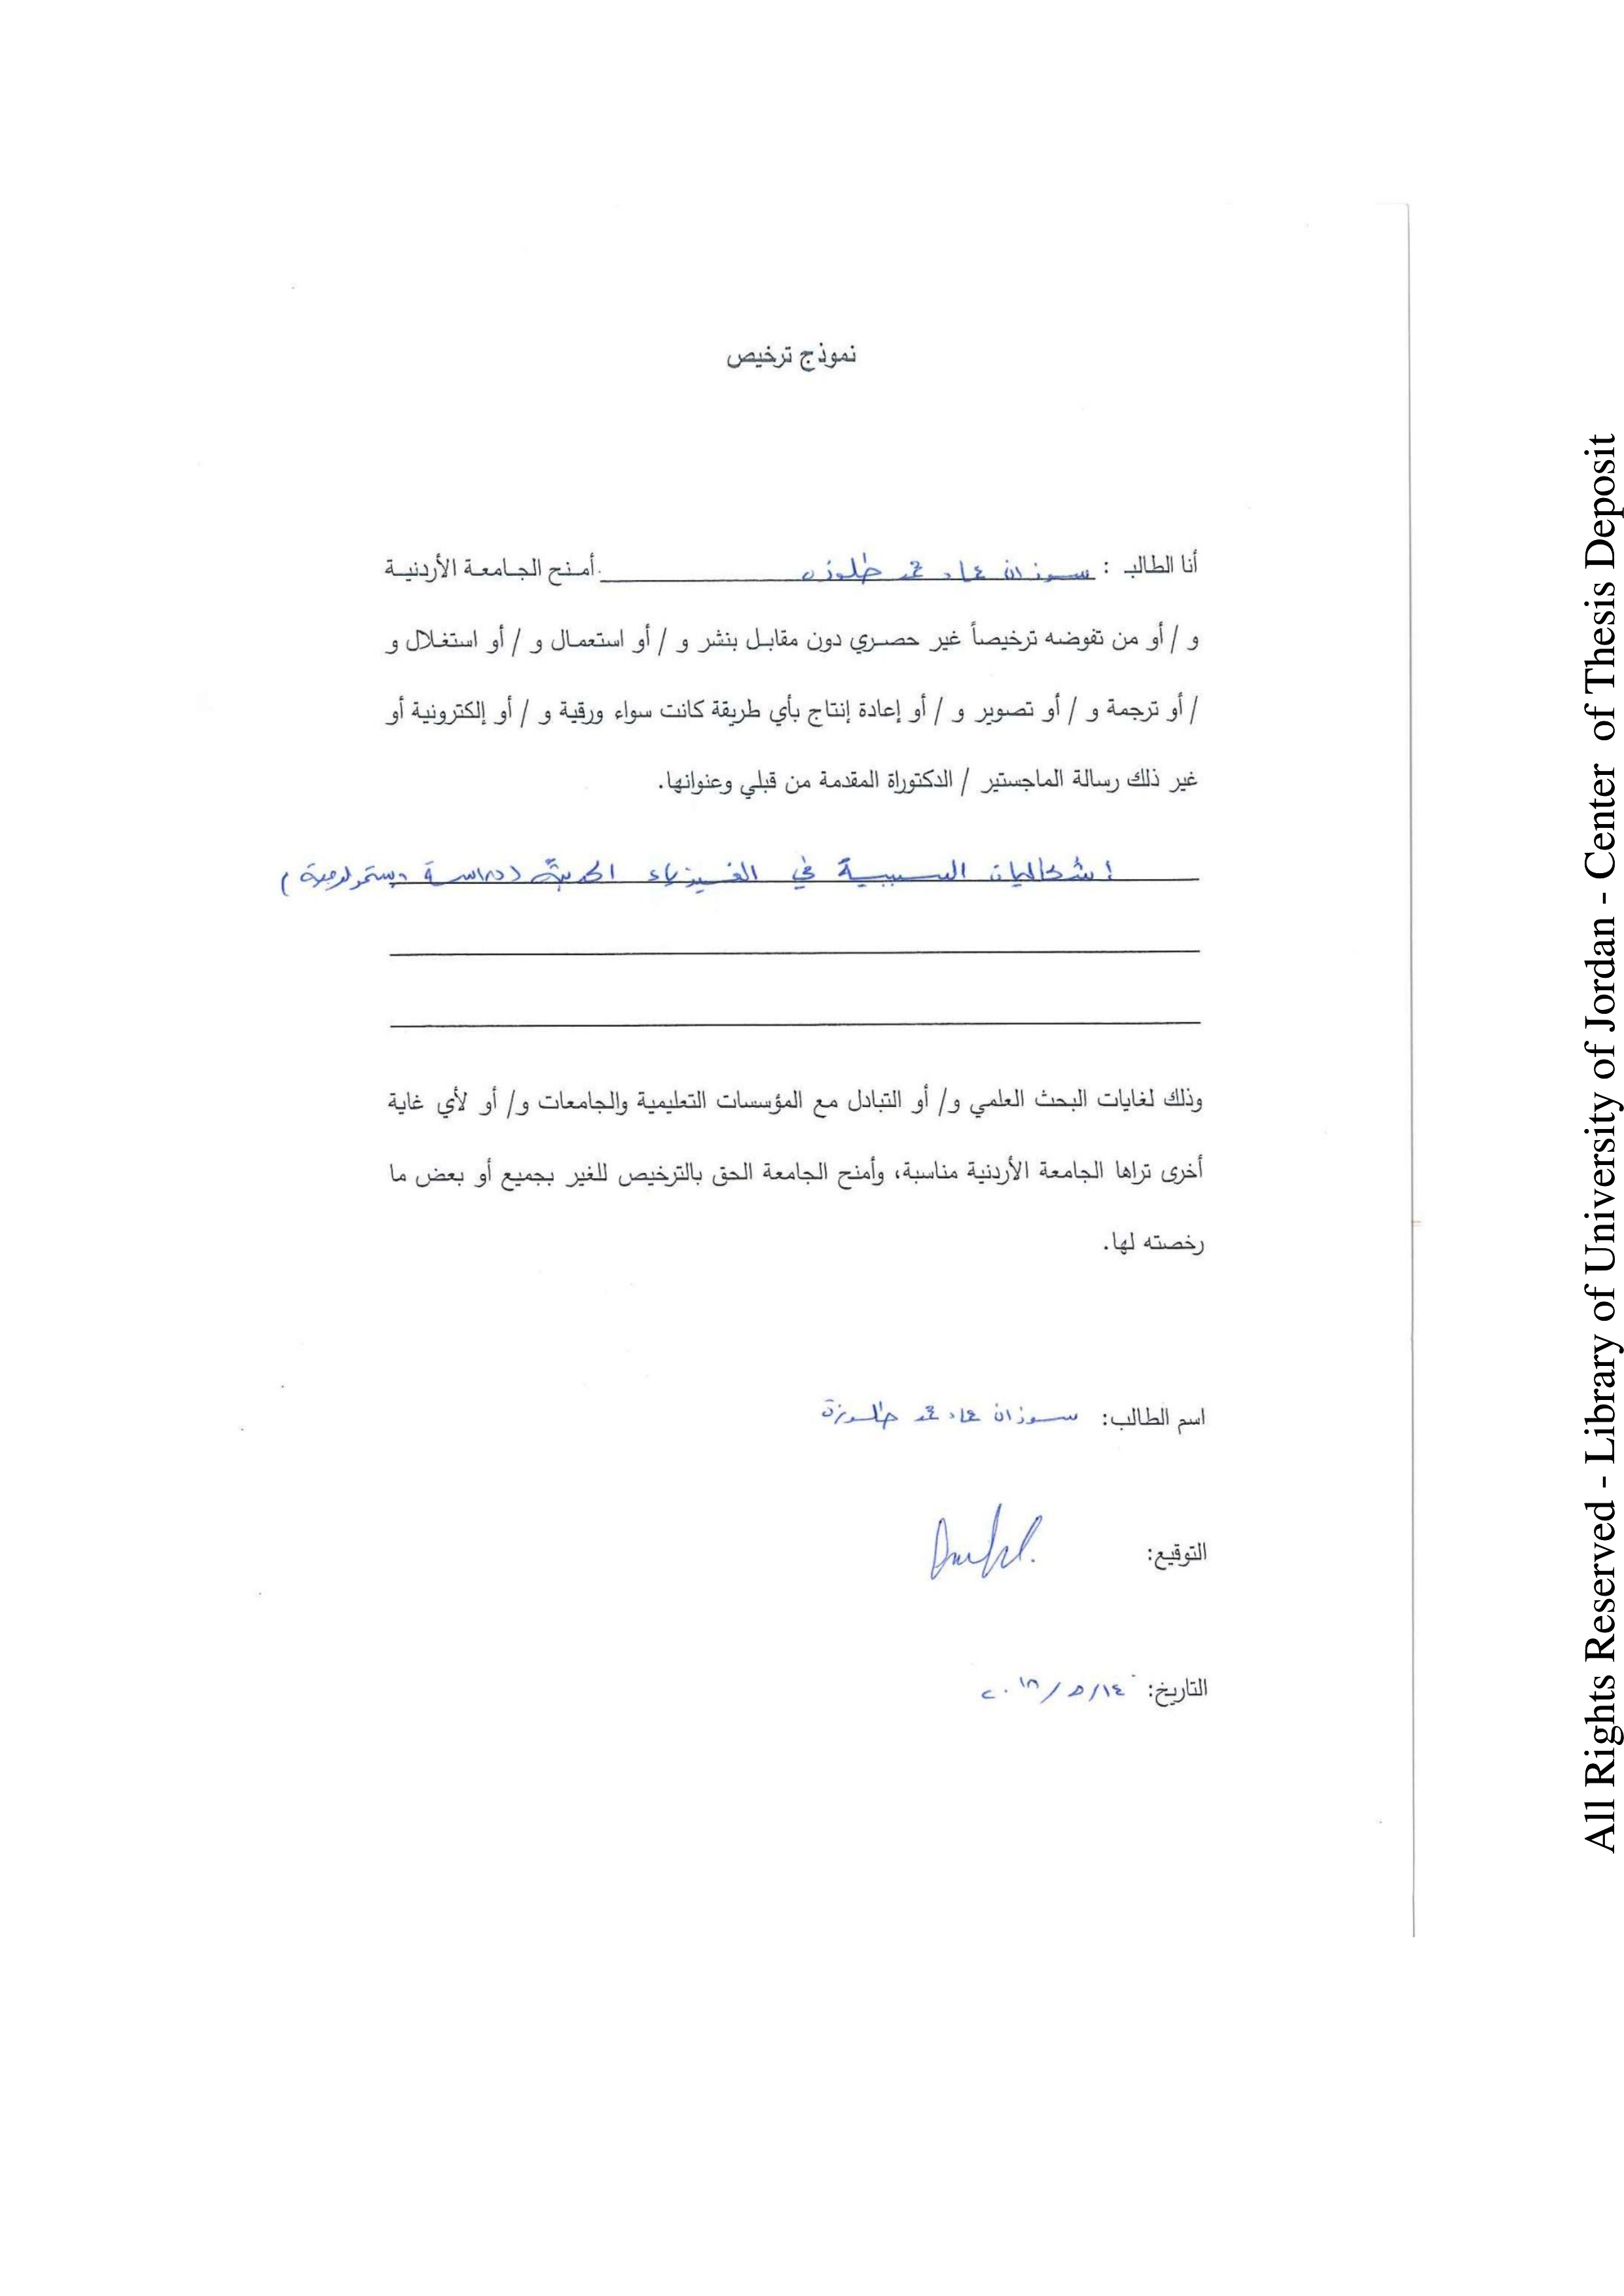 نموذج ترخيص
أنا الطالب : سوزان عماد محمد حلوزه أمنح الجامعة الأردنية
و / أو من تفوضه ترخيصاً غير حصري دون مقابل بنشر و / أو استعمال و / أو استغلال و
/ أو ترجمة و / أو تصوير و / أو إعادة إنتاج بأي طريقة كانت سواء ورقية و / أو إلكترونية أو
غير ذلك رسالة الماجستير / الدكتوراة المقدمة من قبلي وعنوانها.
إشكاليات السببية في الفيزياء الحديثة (دراسة ابستمولوجية)
وذلك لغايات البحث العلمي و/ أو التبادل مع المؤسسات التعليمية والجامعات و/ أو لأي غاية
أخرى تراها الجامعة الأردنية مناسبة، وأمنح الجامعة الحق بالترخيص للغير بجميع أو بعض ما
رخصته لها.
اسم الطالب: سوزان عماد محمد حلوزة
التوقيع:
التاريخ: ١٤/٥/٢٠١٨
All Rights Reserved - Library of University of Jordan - Center of Thesis Deposit